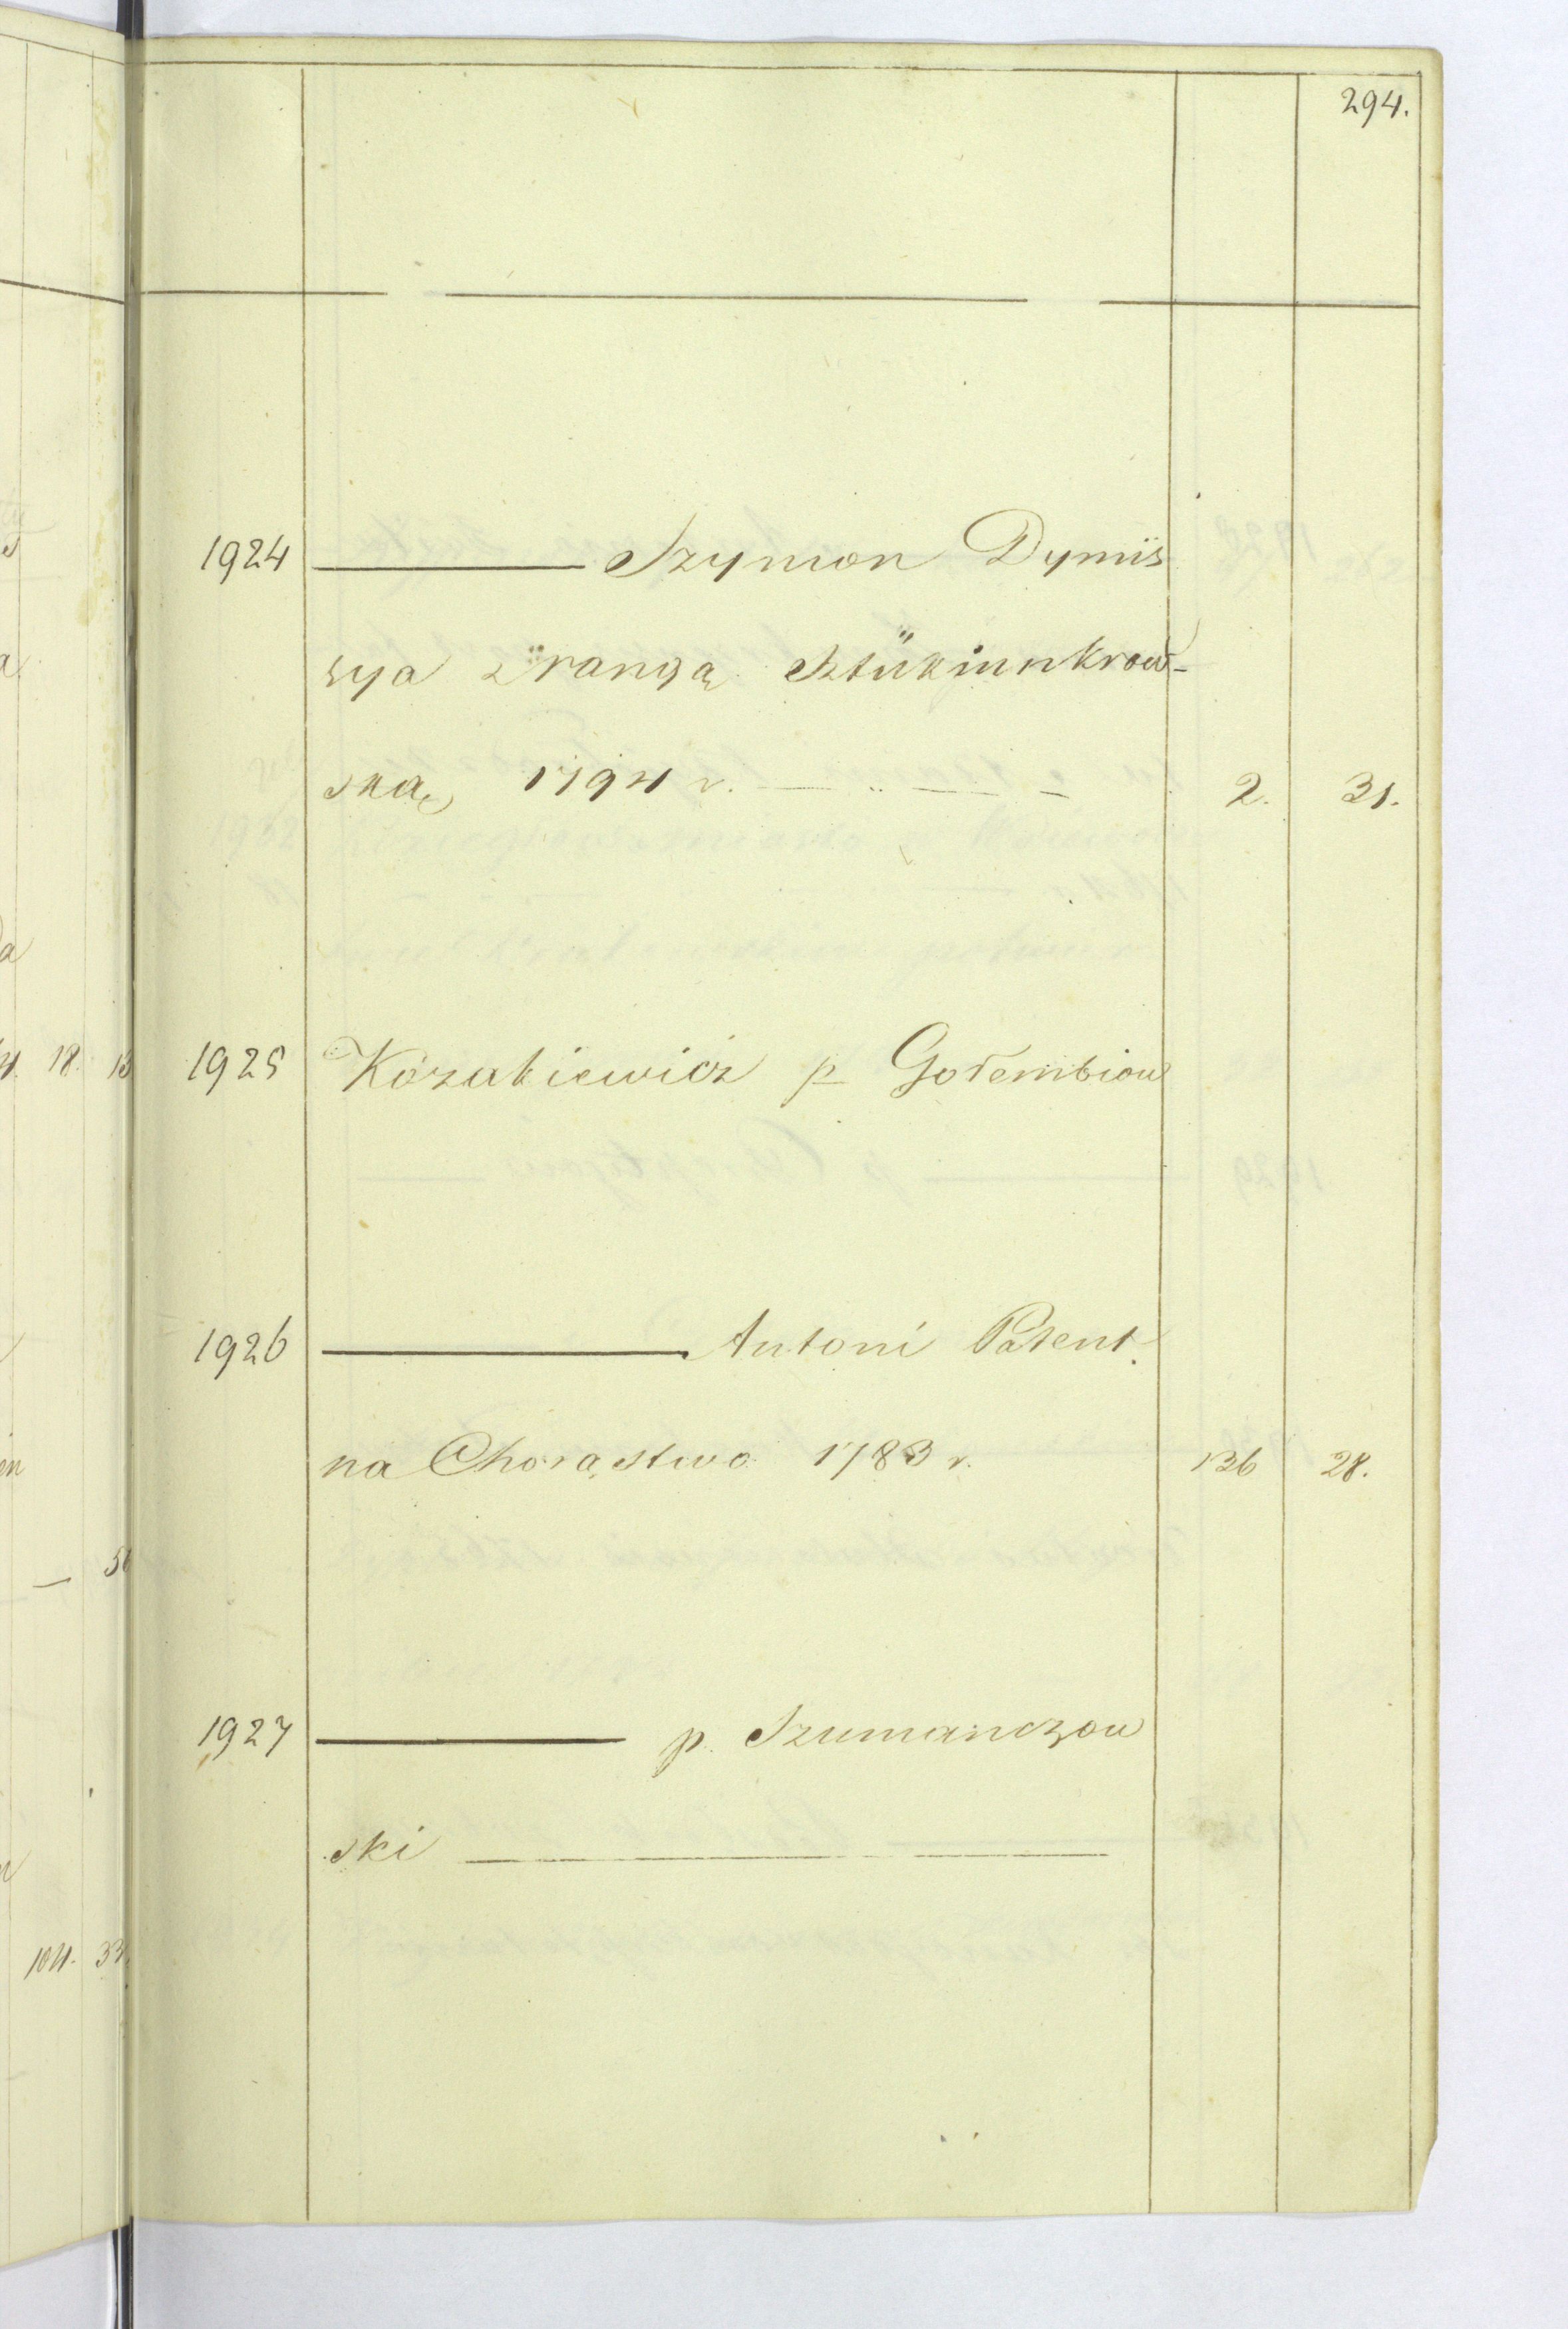 294.
1924 ——— Szymon Dymis
sya z rangą Sztükiunkrow-
ską 1794 r. — .. — — — 2. 31.
1925 Kozakiewicz p Gołembiow
1926 ——— Antoni Patent
na Chorąstwo 1783 r. 136 28.
1927 ——— p. Szumanczow
ski ———
18. 13
56
104. 33.